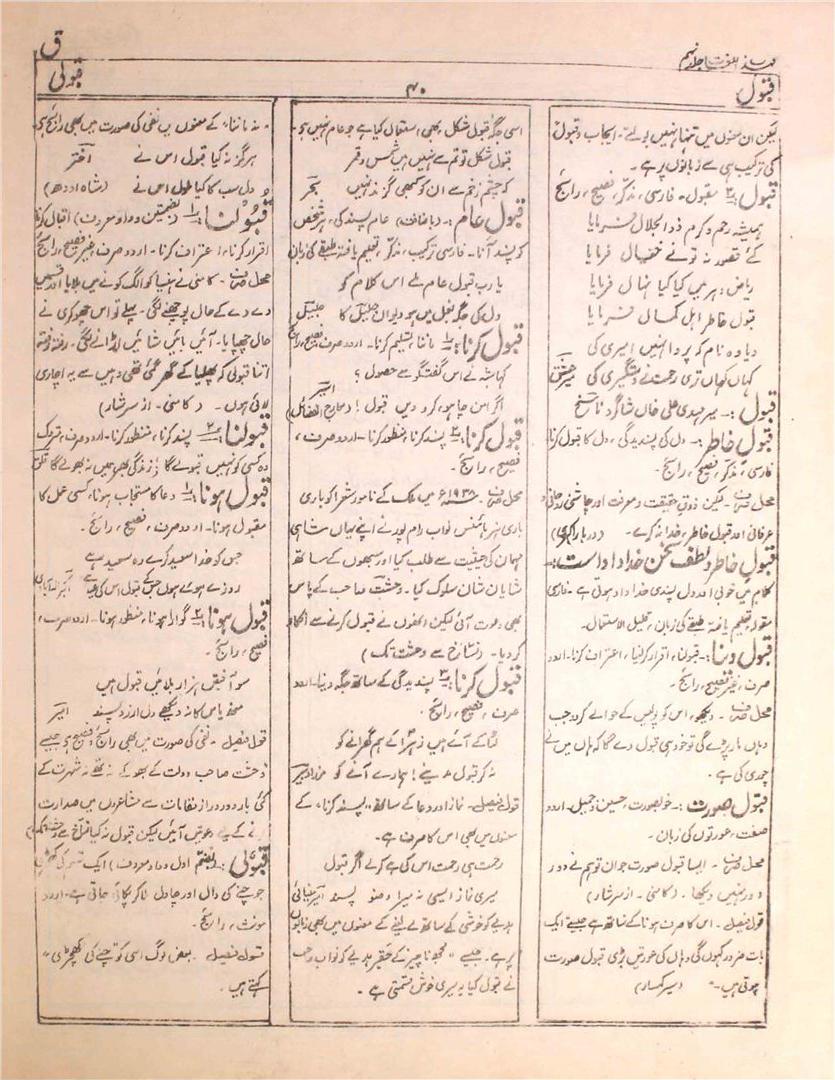 ق
مہذب اللغات جلد نہم
قبول
۴۰
قبولی
لیکن ان معنوں میں تنہا نہیں بولتے۔ ایجاب و قبول
کی ترکیب ہی سے زبانوں پر ہے۔
قبول :۔ مقبول۔ فارسی، مذکر، فصیح، رائج
ہمیشہ رحم و کرم ذوالجلال فرمایا
گئے قصور نہ تونے خیال فرمایا
ریاض دہر میں کیا کیا نہال فرمایا
قبول خاطر اہل کمال فرمایا
دیا وہ نام کہ پروا نہیں امیری کی
کہاں کہاں تری رحمت نے دستگیری کی میر عشق
قبول :۔ میر مہدی علی خاں شاگرد ناسخ
قبول خاطر :۔ دل کی پسندیدگی، دل کا قبول کرنا
فارسی، مذکر، فصیح، رائج۔
محل صرف۔ لیکن ذوق حقیقت و معرفت اور چاشنی روحانی و
عرفانی اور قبول خاطر، خدا نہ کرے۔ (دربار اکبری)
قبول خاطر و لطف سخن خداداد است :۔
کلام میں خوبی اور دل پسندی خداداد ہوتی ہے۔ فارسی
مقولہ، تعلیم یافتہ طبقے کی زبان، قلیل الاستعمال۔
قبول دینا :۔ قبولنا، اقرار کرلینا، اعتراف کرنا۔ اردو
صرف، غیر فصیح، رائج۔
محل صرف۔ دیکھو، اس کو پولیس کے حوالے کردو جب
وہاں مار پڑے گی تو خود ہی قبول دے گا کہ ہاں میں نے
چوری کی ہے۔
قبول صورت :۔ خوبصورت، حسین، جمیل۔ اردو
صفت، عورتوں کی زبان۔
محل صرف۔ ایسا قبول صورت جوان تو ہم نے دور
دور نہیں دیکھا۔ (کامنی۔ از سرشار)
قول فیصل۔ اس کا صرف ہونا کے ساتھ ہے جیسے ایک
بات ضرور کہوں گی وہاں کی عورتیں بڑی قبول صورت
ہوتی ہیں۔" (سیر کہسار)
اسی جگہ قبول شکل بھی استعمال کیا ہے جو عام نہیں ہے۔
قبول شکل تو تم سے نہیں ہیں شمس و قمر
کہ چشم زخم سے ان کو کبھی گزند نہیں بحر
قبول عام :۔ (باضافت) عام پسندگی، ہر شخص
کو پسند آنا۔ فارسی ترکیب، مذکر، تعلیم یافتہ طبقے کی زبان
یارب قبول عام ملے اس کلام کو
دل کی جگہ بغل میں ہو دیوان جلیل کا جلیل
قبول کرنا :۔ ماننا، تسلیم کرنا۔ اردو صرف، فصیح، رائج
کہا شہ نے اس گفتگو سے حصول؟
اگر امن چاہو، کرو دیں قبول! (معارج الفضائل) امیر
قبول کرنا :۔ پسند کرنا، منظور کرنا۔ اردو صرف،
فصیح، رائج۔
محل صرف۔ ۱۹۳۸ء میں ملک کے نامور شعرا کو باری
باری ہز ہائنس نواب رام پور نے اپنے یہاں شاہی
مہمان کی حیثیت سے طلب کیا اور سبھوں کے ساتھ
شایان شان سلوک کیا۔ وحشت صاحب کے پاس
بھی دعوت آئی لیکن انھوں نے قبول کرنے سے انکار
کردیا۔ (نساخ سے وحشت تک)
قبول کرنا :۔ پسندیدگی کے ساتھ جگہ دینا۔ اردو
صرف، فصیح، رائج۔
لٹا کے آئے ہیں زہرا کے ہم گھرانے کو
نہ کر قبول مدینے! ہمارے آنے کو مرزا دبیر
قول فیصل۔ نماز اور دعا کے ساتھ "پسند کرنا" کے
معنوں میں بھی اس کا صرف ہے۔
رحمت ہی رحمت اس کی ہے کرلے اگر قبول
میری نماز ایسی نہ میرا وضو پسند امیر مینائی
ہدیے کو خوشی کے ساتھ لے لینے کے معنوں میں بھی زبانوں
پر ہے۔ جیسے "مجھ ناچیز کے حقیر ہدیے کو نواب صاحب
نے قبول کیا یہ میری خوش قسمتی ہے۔
"نہ ماننا" کے معنوں میں نفی کی صورت میں بھی رائج ہے
ہرگز نہ کیا قبول اس نے اختر
دل سب کا کیا ملول اس نے (شاہ اودھ)
قبولنا :۔ (بضمتین و واو معروف) اقبال کرنا
اقرار کرنا، اعتراف کرنا۔ اردو صرف، غیر فصیح، رائج
محل صرف۔ کامنی نے پنیا کو الگ کونے میں بلایا اور قسمیں
دے دے کے حال پوچھنے لگی۔ پہلے تو اس چھوکری نے
حال چھپایا۔ آئیں بائیں شائیں اڑانے لگی۔ رفتہ رفتہ
اتنا قبولی کہ پھلیا کے گھر گئی تھی وہیں سے یہ اچاری
لائی ہوں۔ (کامنی۔ از سرشار)
قبولنا :۔ پسند کرنا، منظور کرنا۔ اردو صرف، متروک
وہ کسی کو نہیں قبولے گا زندگی بھر ہمیں نہ بھولے گا قلق
قبول ہونا :۔ دعا کا مستجاب ہونا، کسی عمل کا
مقبول ہونا۔ اردو صرف، فصیح، رائج۔
جس کو خدا سعید کرے وہ سعید ہے
روزے ہوئے ہوں جس کے قبول اس کی عید ہے اکبر الہ آبادی
قبول ہونا :۔ گوارا ہونا، منظور ہونا۔ اردو صرف،
فصیح، رائج۔
سو آفتیں ہزار بلائیں قبول ہیں
منھ یاس کا نہ دیکھے دل آرزو پسند امیر
قول فیصل۔ نفی کی صورت میں بھی رائج و فصیح ہے جیسے
وحشت صاحب دولت کے بھوکے نہ تھے نہ شہرت کے
کئی بار دور دراز مقامات سے مشاعروں میں صدارت
کرنے کے لیے دعوتیں آئیں لیکن قبول نہ کیا
قبولی :۔ (بفتح اول و واو معروف) ایک قسم کی کھچڑی
جو چنے کی دال اور چاول ملا کر پکائی جاتی ہے۔ اردو
مونث، رائج۔
قول فیصل۔ بعض لوگ اسی کو "چنے کی کھچڑی"
کہتے ہیں۔